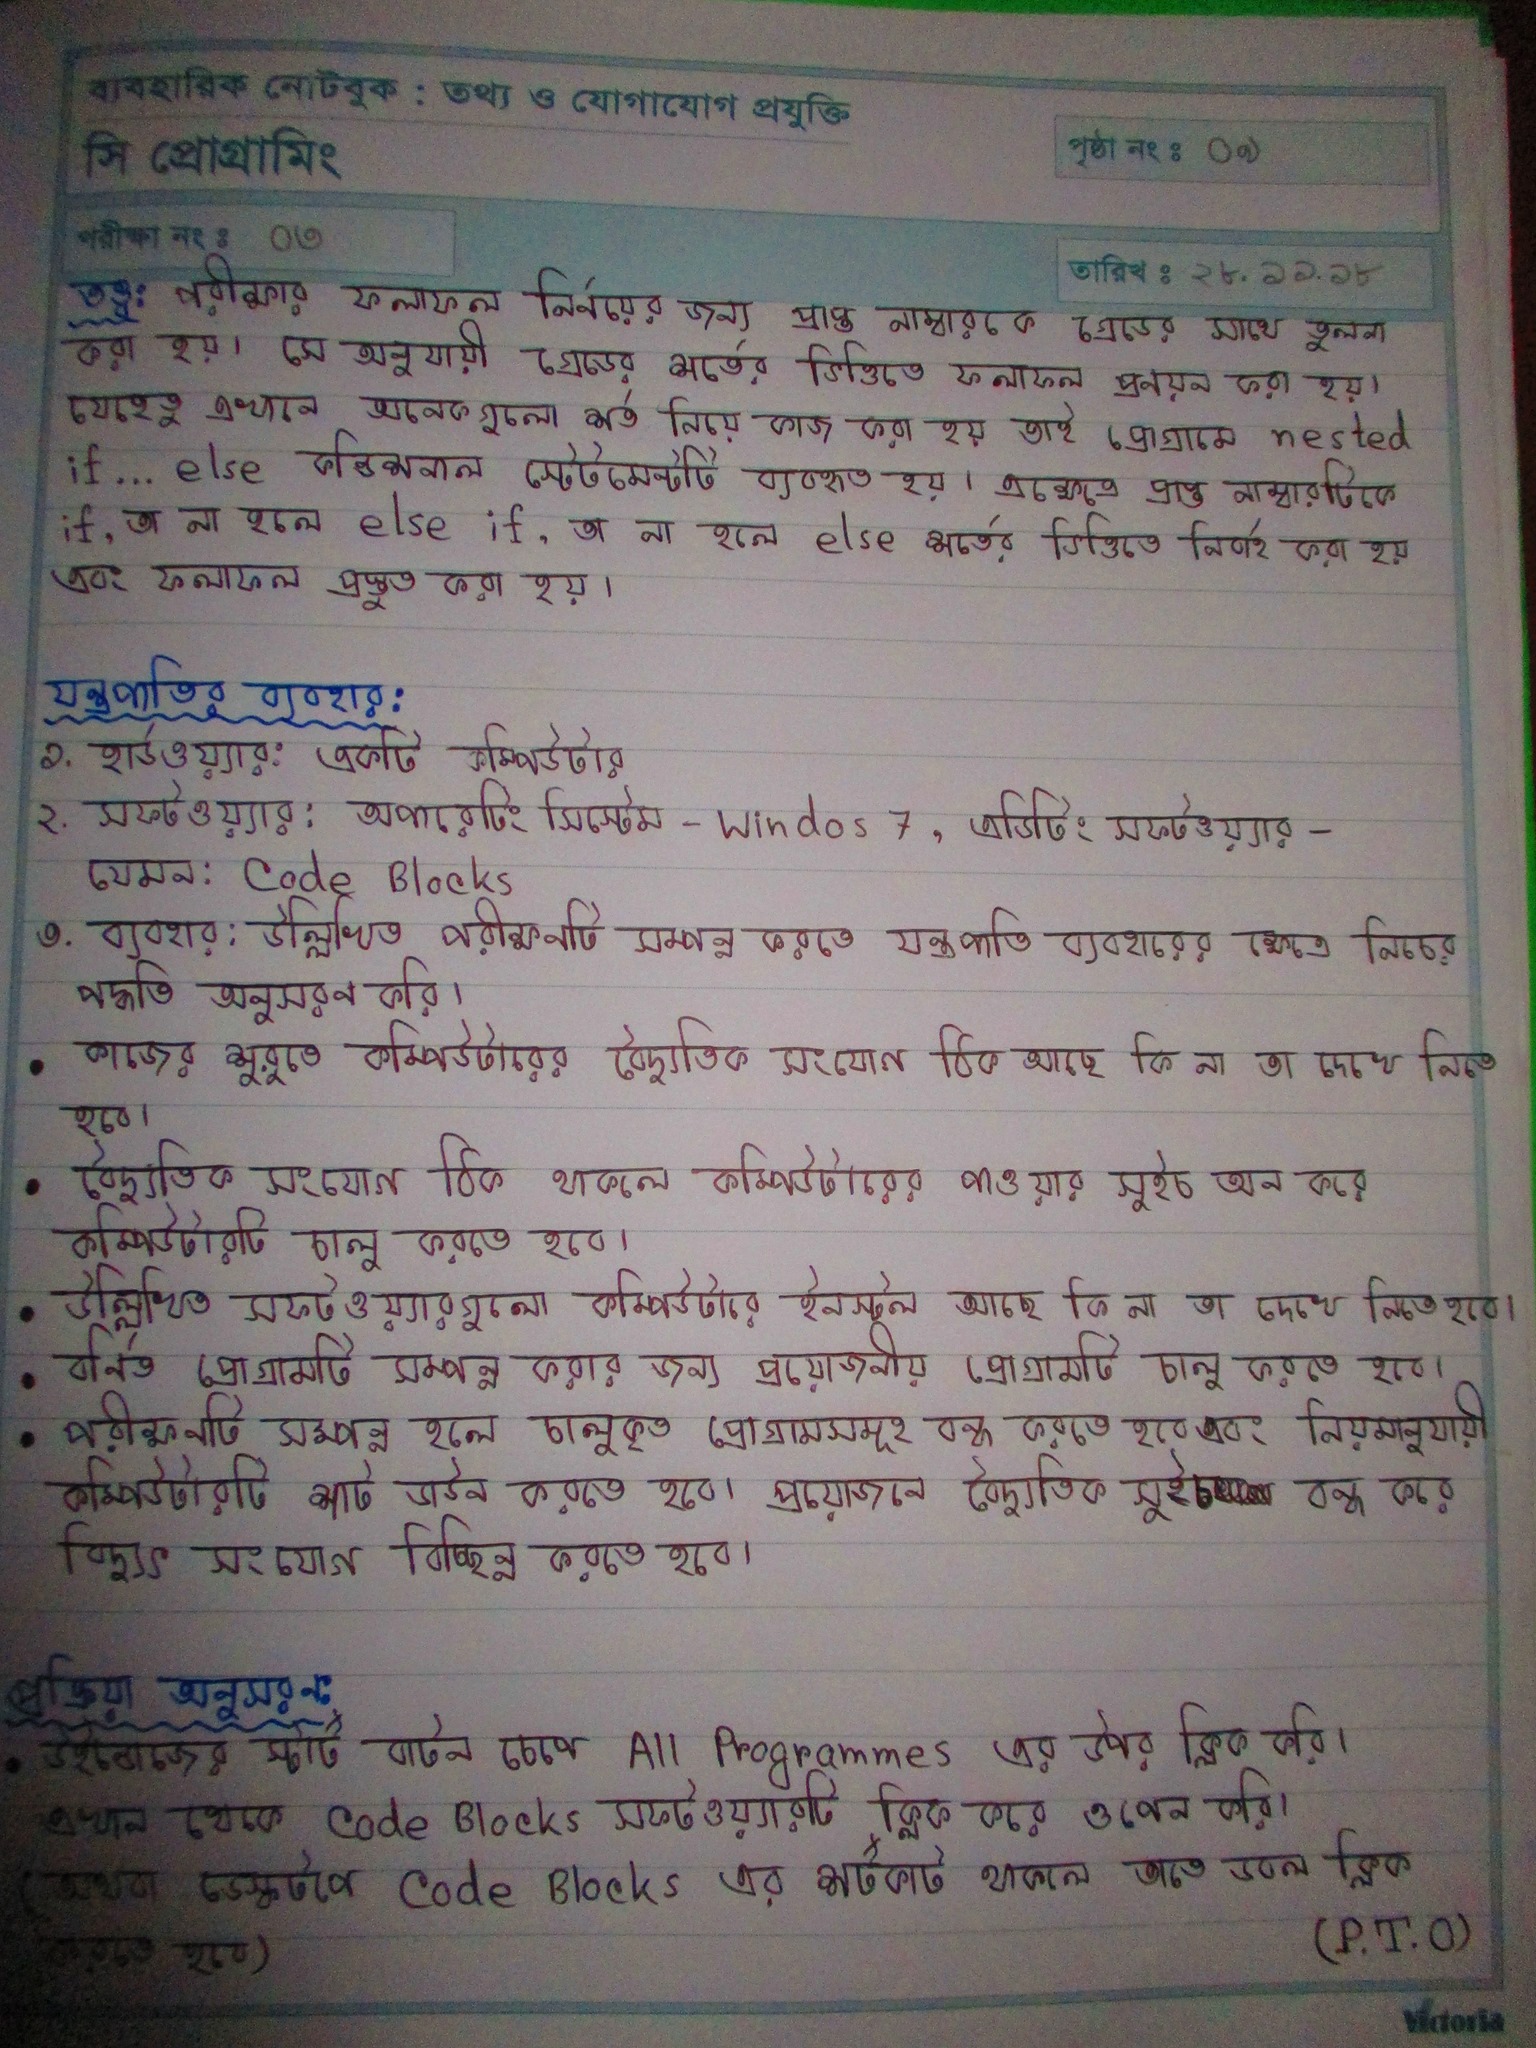 ব্যবহারিক নোটবুক : তথ্য ও যোগাযোগ প্রযুক্তি
সি প্রোগ্রামিং
পৃষ্ঠা নং :
পরীক্ষা নং : ০৩
তারিখ : ২৮.১১.১৮
তত্ত্ব: পরীক্ষার ফলাফল নির্নয়ের জন্য প্রাপ্ত নাম্বারকে গ্রেডের সাথে তুলনা
করা হয়। সে অনুযায়ী গ্রেডের শর্তের ভিত্তিতে ফলাফল প্রনয়ন করা হয়।
যেহেতু এখানে অনেকগুলো শর্ত নিয়ে কাজ করা হয় তাই প্রোগ্রামে nested
if... else কন্ডিশনাল স্টেটমেন্টটি ব্যবহৃত হয়। এক্ষেত্রে প্রাপ্ত নাম্বারটিকে
if, তা না হলে else if, তা না হলে else শর্তের ভিত্তিতে নির্বাহ করা হয়
এবং ফলাফল প্রস্তুত করা হয়।
যন্ত্রপাতির ব্যবহার:
১. হার্ডওয়্যার: একটি কম্পিউটার
২. সফটওয়্যার: অপারেটিং সিস্টেম - Windos 7, এডিটিং সফটওয়্যার -
যেমন: Code Blocks
৩. ব্যবহার: উল্লিখিত পরীক্ষনটি সম্পন্ন করতে যন্ত্রপাতি ব্যবহারের ক্ষেত্রে নিচের
পদ্ধতি অনুসরণ করি।
• কাজের শুরুতে কম্পিউটারের বৈদ্যুতিক সংযোগ ঠিক আছে কি না তা দেখে নিতে
হবে।
• বৈদ্যুতিক সংযোগ ঠিক থাকলে কম্পিউটারের পাওয়ার সুইচ অন করে
কম্পিউটারটি চালু করতে হবে।
• উল্লিখিত সফটওয়্যারগুলো কম্পিউটারে ইনস্টল আছে কি না তা দেখে নিতে হবে।
• বর্নিত প্রোগ্রামটি সম্পন্ন করার জন্য প্রয়োজনীয় প্রোগ্রামটি চালু করতে হবে।
• পরীক্ষনটি সম্পন্ন হলে চালুকৃত প্রোগ্রামসমূহ বন্ধ করতে হবে এবং নিয়মানুযায়ী
কম্পিউটারটি শাট ডাউন করতে হবে। প্রয়োজনে বৈদ্যুতিক সুইচ বন্ধ করে
বিদ্যুৎ সংযোগ বিচ্ছিন্ন করতে হবে।
প্রক্রিয়া অনুসরন:
• উইন্ডোজের স্টার্ট বাটন চেপে All Programmes এর উপর ক্লিক করি।
এখান থেকে Code Blocks সফটওয়্যারটি ক্লিক করে ওপেন করি।
(অথবা ডেস্কটপে Code Blocks এর শর্টকার্ট থাকলে তাতে ডবল ক্লিক
করতে হবে)
(P.T.O)
Victoria